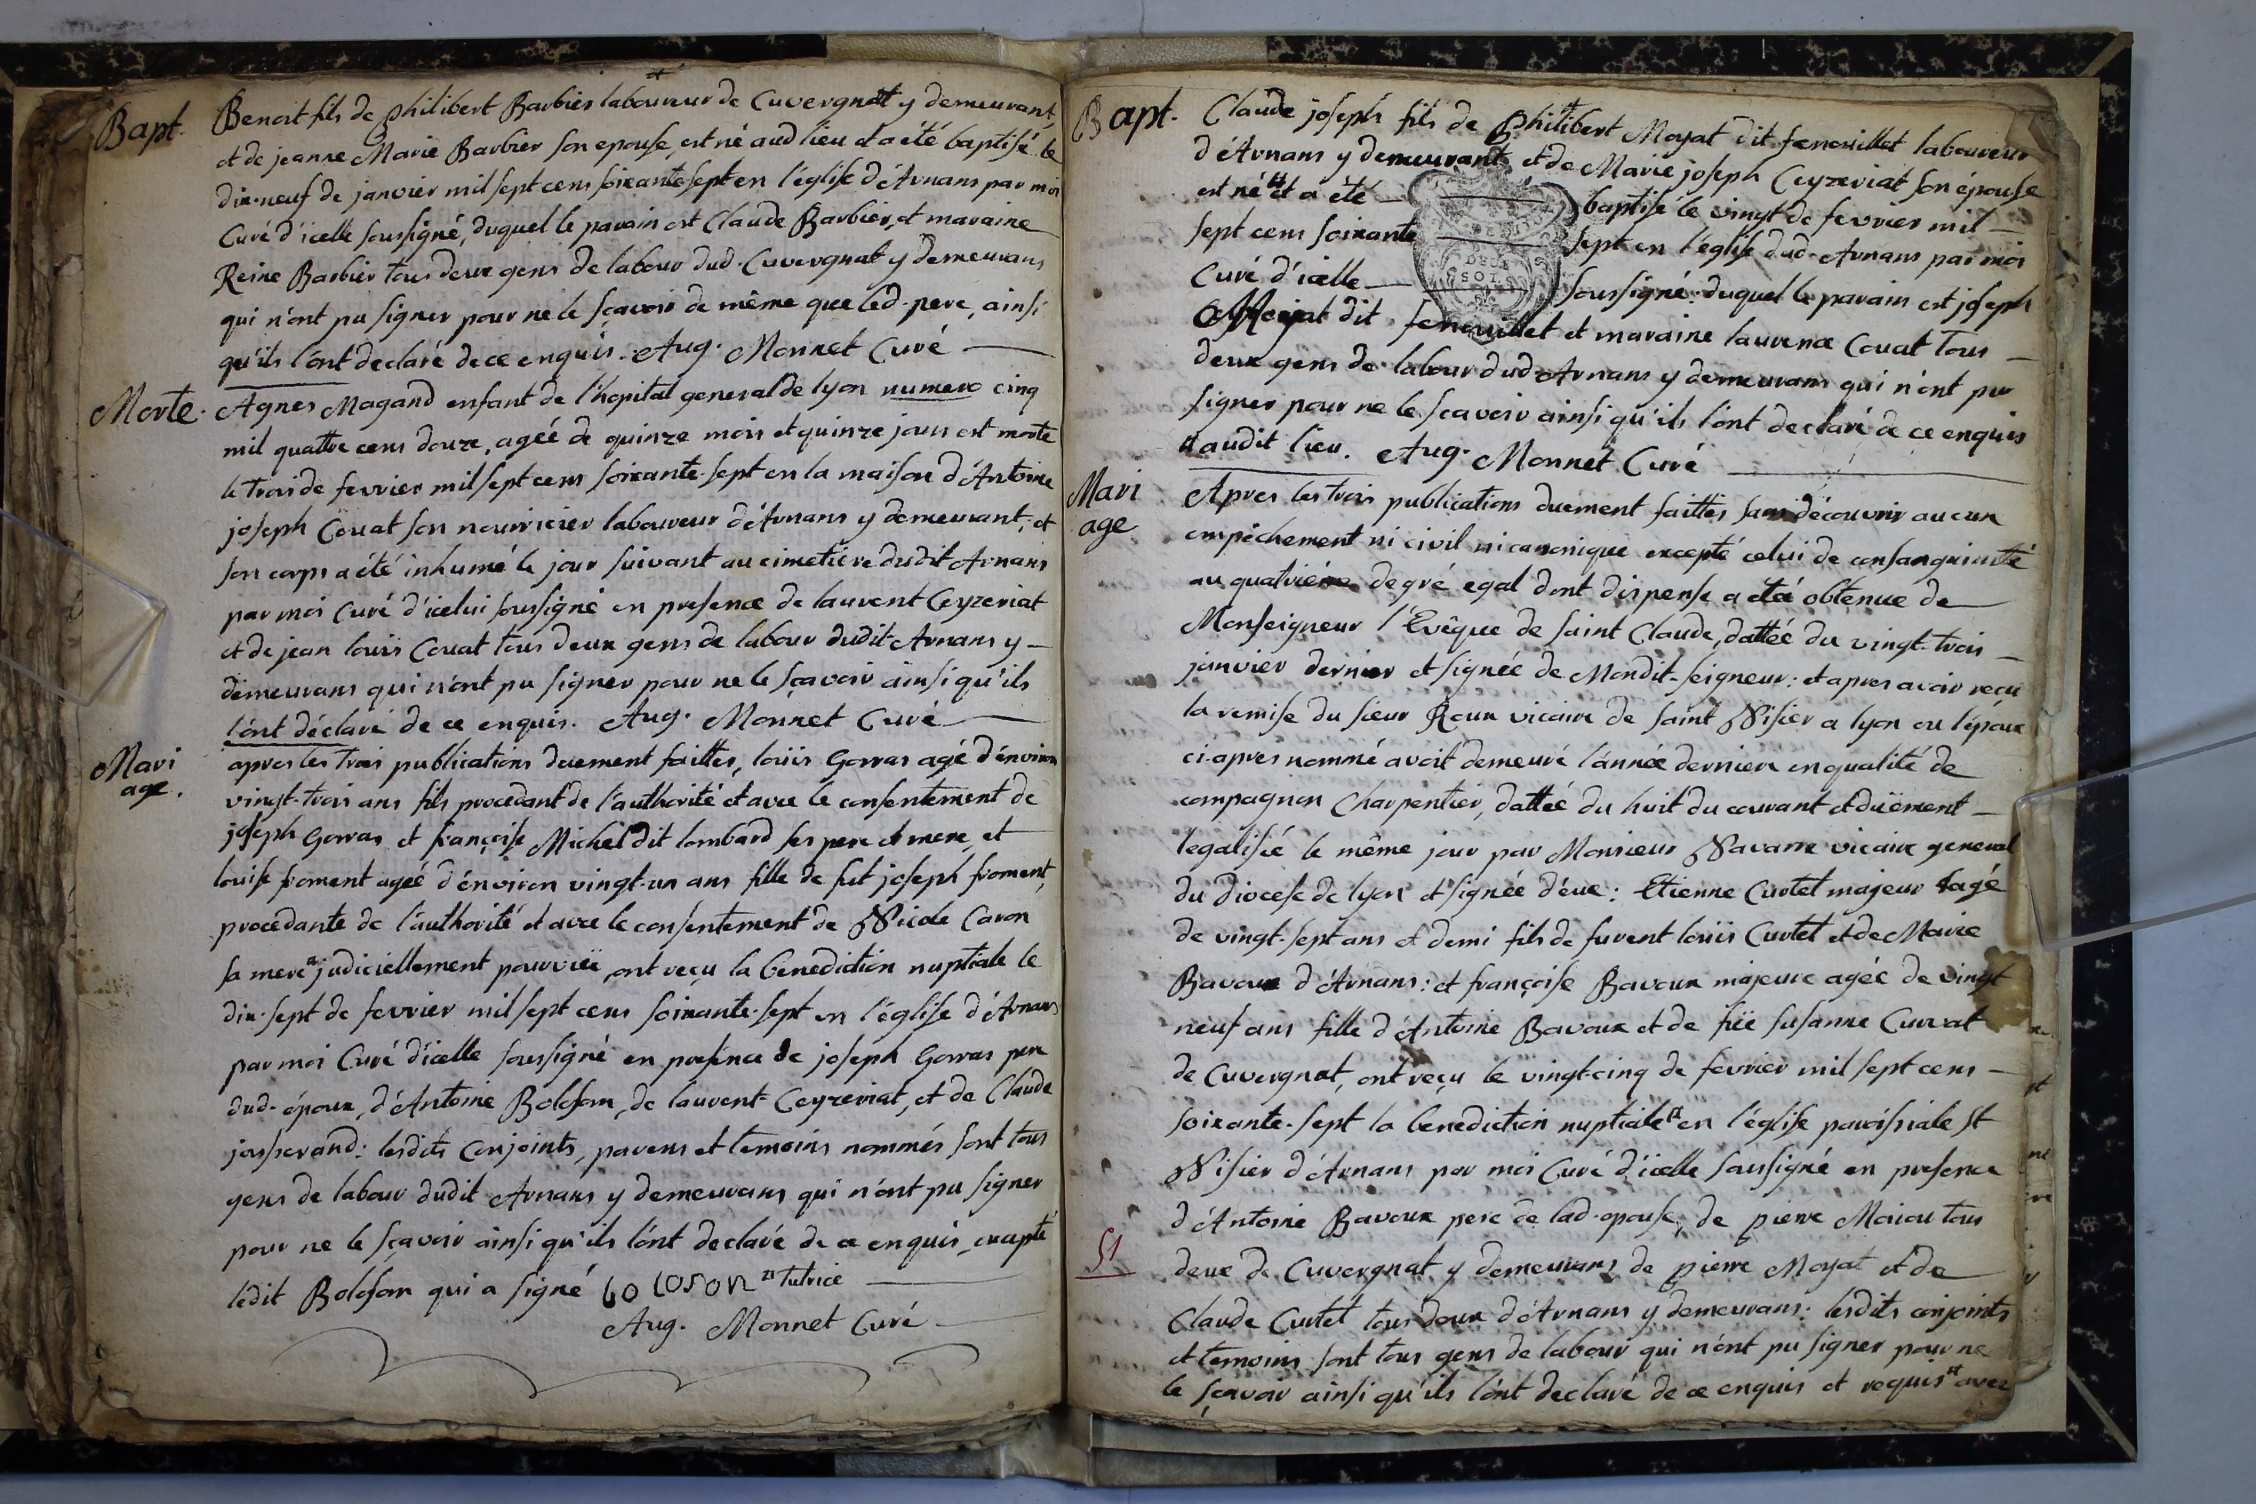 Bapt. Benoit fils de Philibert Barbier laboureur de Cuvergnat y demeurant
et de jeanne Marie Barbier son epouse, est né aud lieu et a été baptisé le
dix-neuf de janvier mil sept cens soixante sept en l'église d'Arnans par moi
Curé d'icelle soussigné, duquel le parain est Claude Barbier, et maraine
Reine Barbier tous deux gens de labour dud. Cuvergnat y demeurans
qui n'ont pu signer pour ne le sçavoir de même que led. pere, ainsi
qu'ils l'ont declaré de ce enquis. Aug. Monnet Curé
Morte. Agnes Magand enfant de l'hopital general de lyon numero cinq
mil quattre cens douze, agée de quinze mois et quinze jours est morte
le trois de fevrier mil sept cens soixante-sept en la maison d'Antoine
joseph Couat son nourricier laboureur d'Arnans y demeurant, et
son corps a été inhumé le jour suivant au cimetiere dudit Arnans
par moi Curé d'icelui soussigné en presence de laurent Ceyzeriat
et de jean louis Couat tous deux gens de labour dudit Arnans y
demeurans qui n'ont pu signer pour ne le sçavoir ainsi qu'ils
l'ont déclaré de ce enquis. Aug. Monnet Curé
Mari
age. apres les trois publications duement faittes, louis Gorras agé d'environ
vingt-trois ans fils procedant de l'authorité et avec le consentement de
joseph Gorras et françoise Michel dit lombard ses pere et mere, et
louise froment agée d'environ vingt-un ans fille de fut joseph froment,
procedante de l'authorité et avec le consentement de Nicole Caron
sa mere judiciellement pourvuë, ont reçu la benediction nuptiale le
dix-sept de fevrier mil sept cens soixante-sept en l'église d'Arnans
par moi Curé d'icelle soussigné en presence de joseph Gorras pere
dud. époux, d'Antoine Boloson, de laurent Ceyzeriat, et de Claude
josserand: lesdits Conjoints, parens et temoins nommés sont tous
gens de labour dudit Arnans y demeurans qui n'ont pu signer
pour ne le sçavoir ainsi qu'ils l'ont declaré de ce enquis, excepté
ledit Boloson qui a signé bo loson tutrice
Aug. Monnet Curé
Bapt. Claude joseph fils de Philibert Moyat dit fenouillet laboureur
d'Arnans y demeurant, et de Marie joseph Ceyzeriat son épouse
est né et a été baptisé le vingt de fevrier mil
sept cens soixante sept en l'église dud. Arnans par moi
Curé d'icelle soussigné: duquel le parain est joseph
Moyat dit fenouillet et maraine laurence Couat tous
deux gens de labour dud Arnans y demeurans qui n'ont pu
signer pour ne le sçavoir ainsi qu'ils l'ont declaré de ce enquis
audit lieu. Aug. Monnet Curé
Mari
age Apres les trois publications duement faittes sans découvrir aucun
empêchement ni civil ni canonique excepté celui de consanguinité
au quatriéme degré egal dont dispense a été obtenue de
Monseigneur l'Evêque de saint Claude, dattée du vingt-trois
janvier dernier et signée de Mondit-seigneur: et apres avoir reçu
la remise du sieur Roux vicaire de saint Nisier a lyon ou l'époux
ci-apres nommé avoit demeuré l'année derniere en qualité de
compagnon Charpentier, dattée du huit du courant et duëment
legalisée le même jour par Monsieur Navarre vicaire general
du diocese de lyon et signée d'eux: Etienne Curtet majeur agé
de vingt-sept ans et demi fils de furent louis Curtet et de Marie
Bavoux d'Arnans: et françoise Bavoux majeure agée de vingt
neuf ans fille d'Antoine Bavoux et de fuë susanne Currat
de Cuvergnat, ont reçu le vingt-cinq de fevrier mil sept cens
soixante-sept la benediction nuptiale en l'église paroissiale St
Nisier d'Arnans par moi Curé d'icelle soussigné en presence
d'Antoine Bavoux pere de lad. epouse, de pierre tous
51 deux de Cuvergnat y demeurans, de pierre Moyat et de
Claude Curtet tous deux d'Arnans y demeurans: lesdits conjoints
et temoins sont tous gens de labour qui n'ont pu signer pour ne
le sçavoir ainsi qu'ils l'ont declaré de ce enquis et requis avec